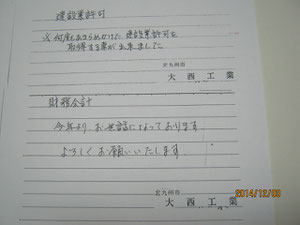 建設業許可
※ 何度もあきらめかけた 建設業許可を
取得する事が出来ました
北九州市
大西工業
財務会計
今年より お世話になっております
よろしくお願いいたします
北九州市
大西工業
2014/12/08